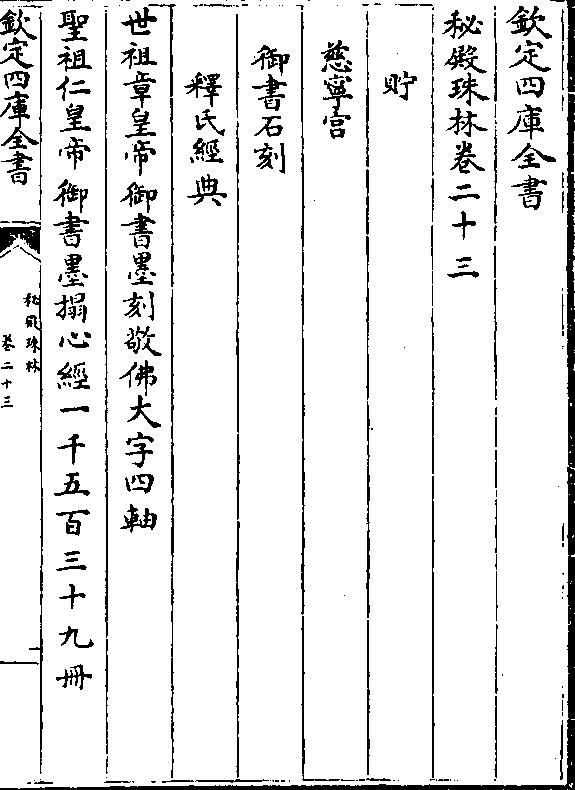 欽定四庫全書
秘殿珠林卷二十三
貯
慈寧宮
御書石刻
釋氏經典
世祖章皇帝御書墨刻敬佛大字四軸
聖祖仁皇帝御書墨搨心經一千五百三十九冊
欽定四庫全書
秘殿珠林
卷二十三
一